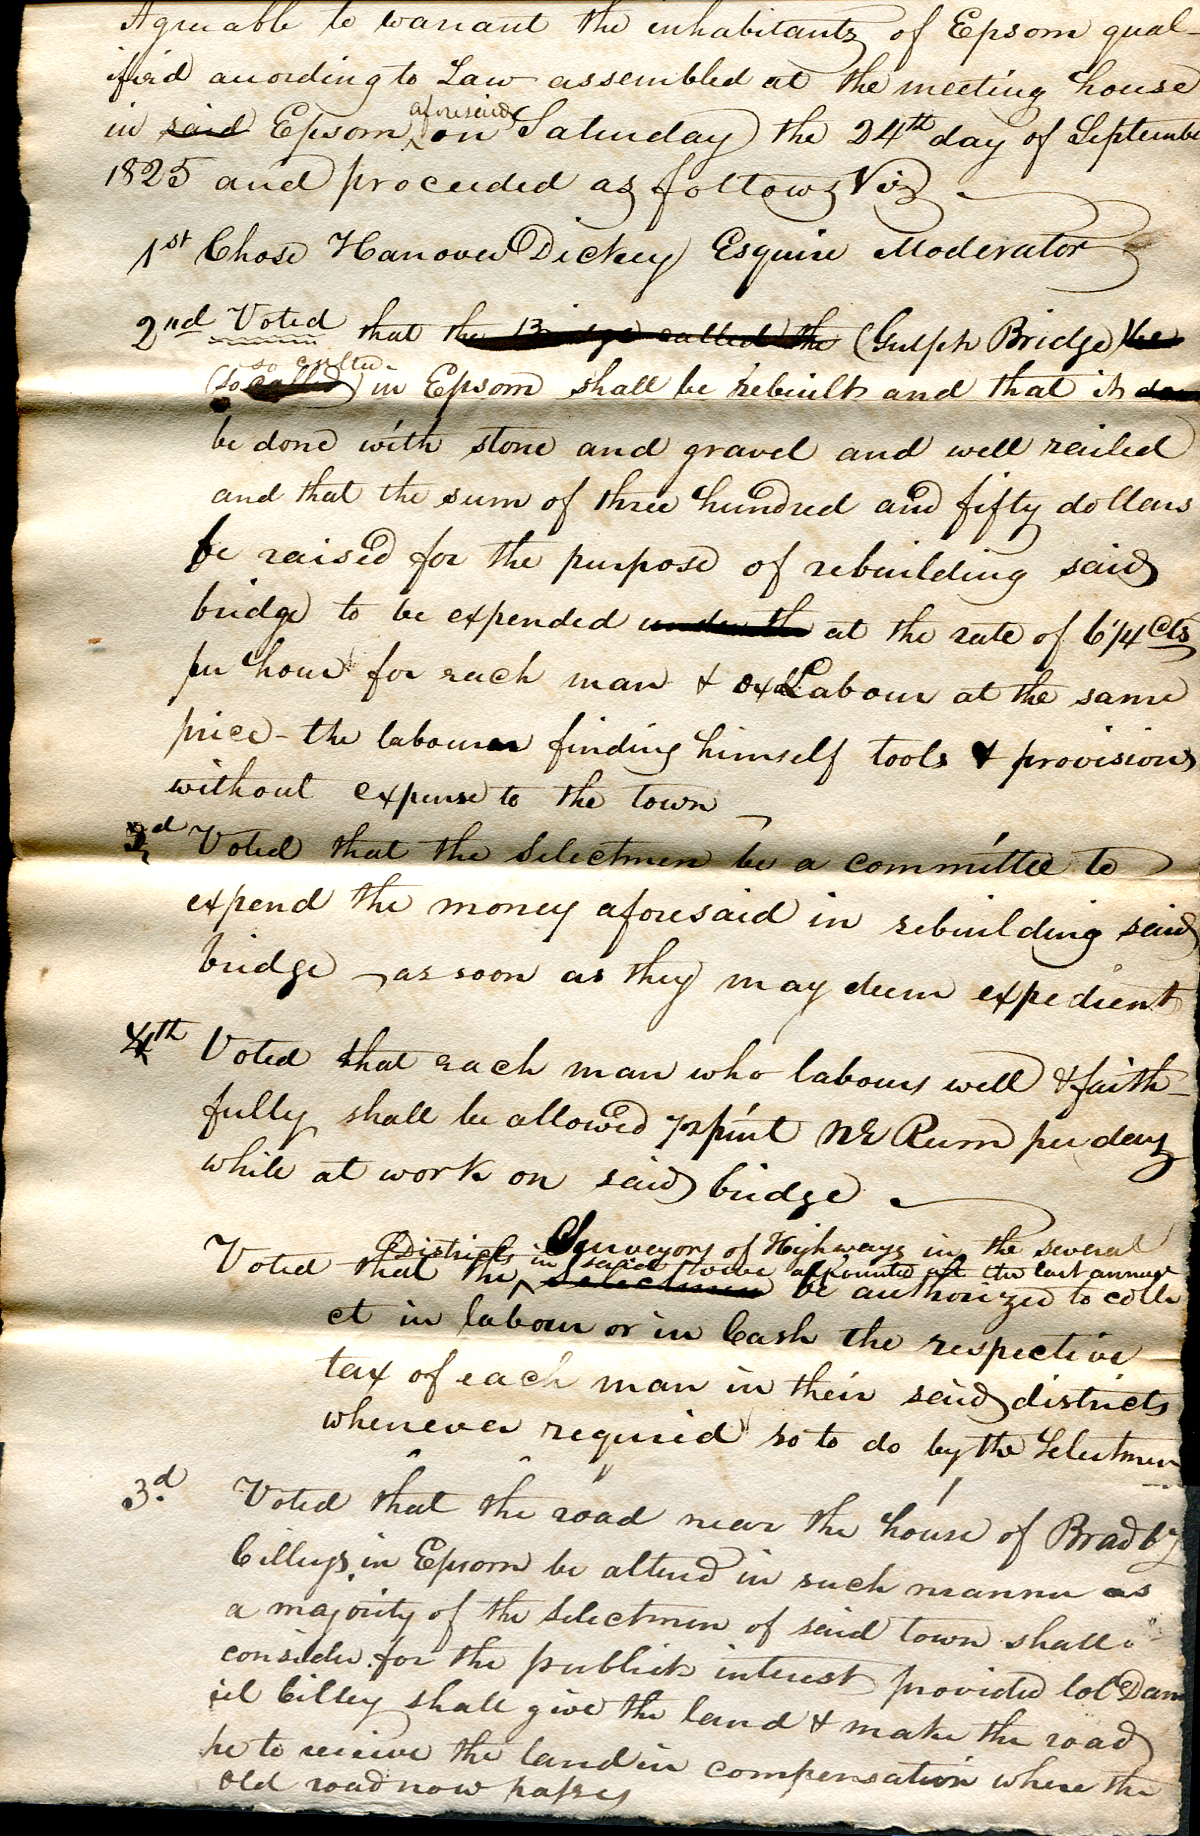 Agreeable to warrant the inhabitants of Epsom qual-
ified acording to Law assembled at the meeting house
in said Epsom aforesaid on Saturday the 24th day of Septembe
1825 and proceeded as follows Viz
1st Chose Hanover Dickey Esquire Moderator
2nd Voted that the Bridge called the (Gulph Bridge) be
so called
(so called) in Epsom shall be rebuilt and that it
be done with stone and gravel and well railed
and that the sum of three hundred and fifty dollars
be raised for the purpose of rebuilding said
bridge to be expended under the at the rate of 6 1/4 Cts
per hour for each man & ox Labour at the same
price - the labourer finding himself tools & provisions
without expense to the town
3d Voted that the Selectmen be a committee to
expend the money aforesaid in rebuilding said
bridge as soon as they may deem expedient
4th Voted that each man who labours well & faith-
fully shall be allowed 1/2 pint NE Rum per day
while at work on said bridge
Surveyors of Highways in the several
Districts in said town appointed at the last annual
Voted that the Selectmen be authorized to colle
ct in labour or in Cash the respective
tax of each man in their said districts
whenever required so to do by the Selectmen
3d Voted that the road near the house of Bradby
Cilleys in Epsom be altered in such manner as
a majority of the Selectmen of said town shall
consider for the publick interest provided Col Dan
iel Cilley shall give the land & make the road
he to receive the land in compensation where the
old road now passes